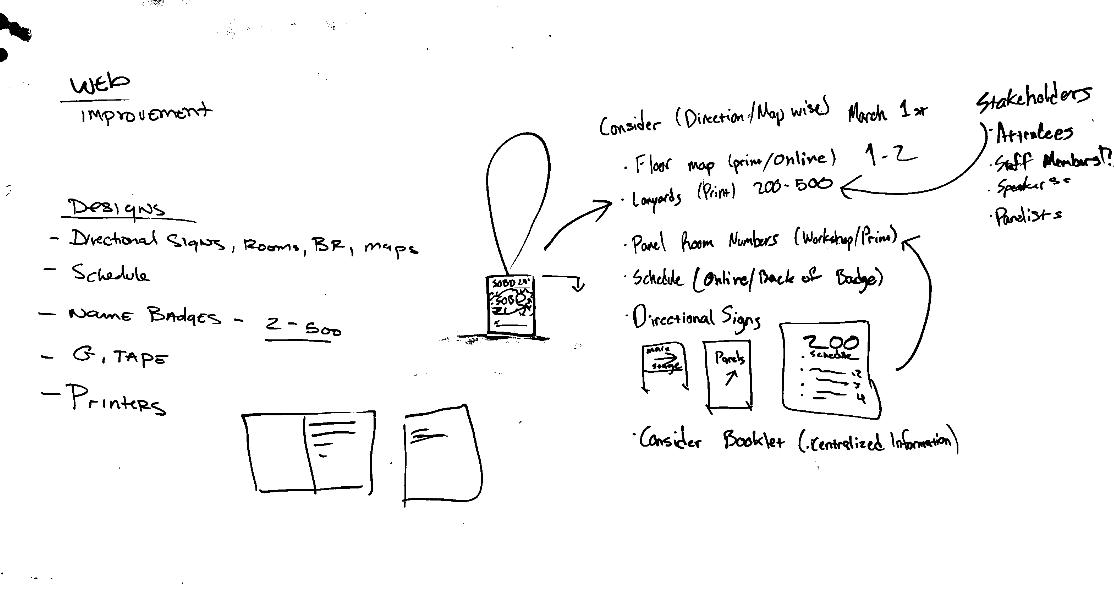 WEB
IMPROVEMENT
DESIGNS
- Directional Signs, Rooms, BR, maps
- Schedule
- Name Badges - 2-500
- G, TAPE
- Printers
SOBD
SOBD
21
Consider (Direction/Map wise) March 1st
· Floor map (print/Online) 1-2
· Lanyards (Print) 200-500
· Panel Room Numbers (Workshop/Print)
· Schedule (Online/Back of Badge)
· Directional Signs
Panels
200
Schedule
2
3
4
· Consider Booklet (Centralized Information)
Stakeholders
· Attendees
· Staff Members!?
· Speakers
· Panelists